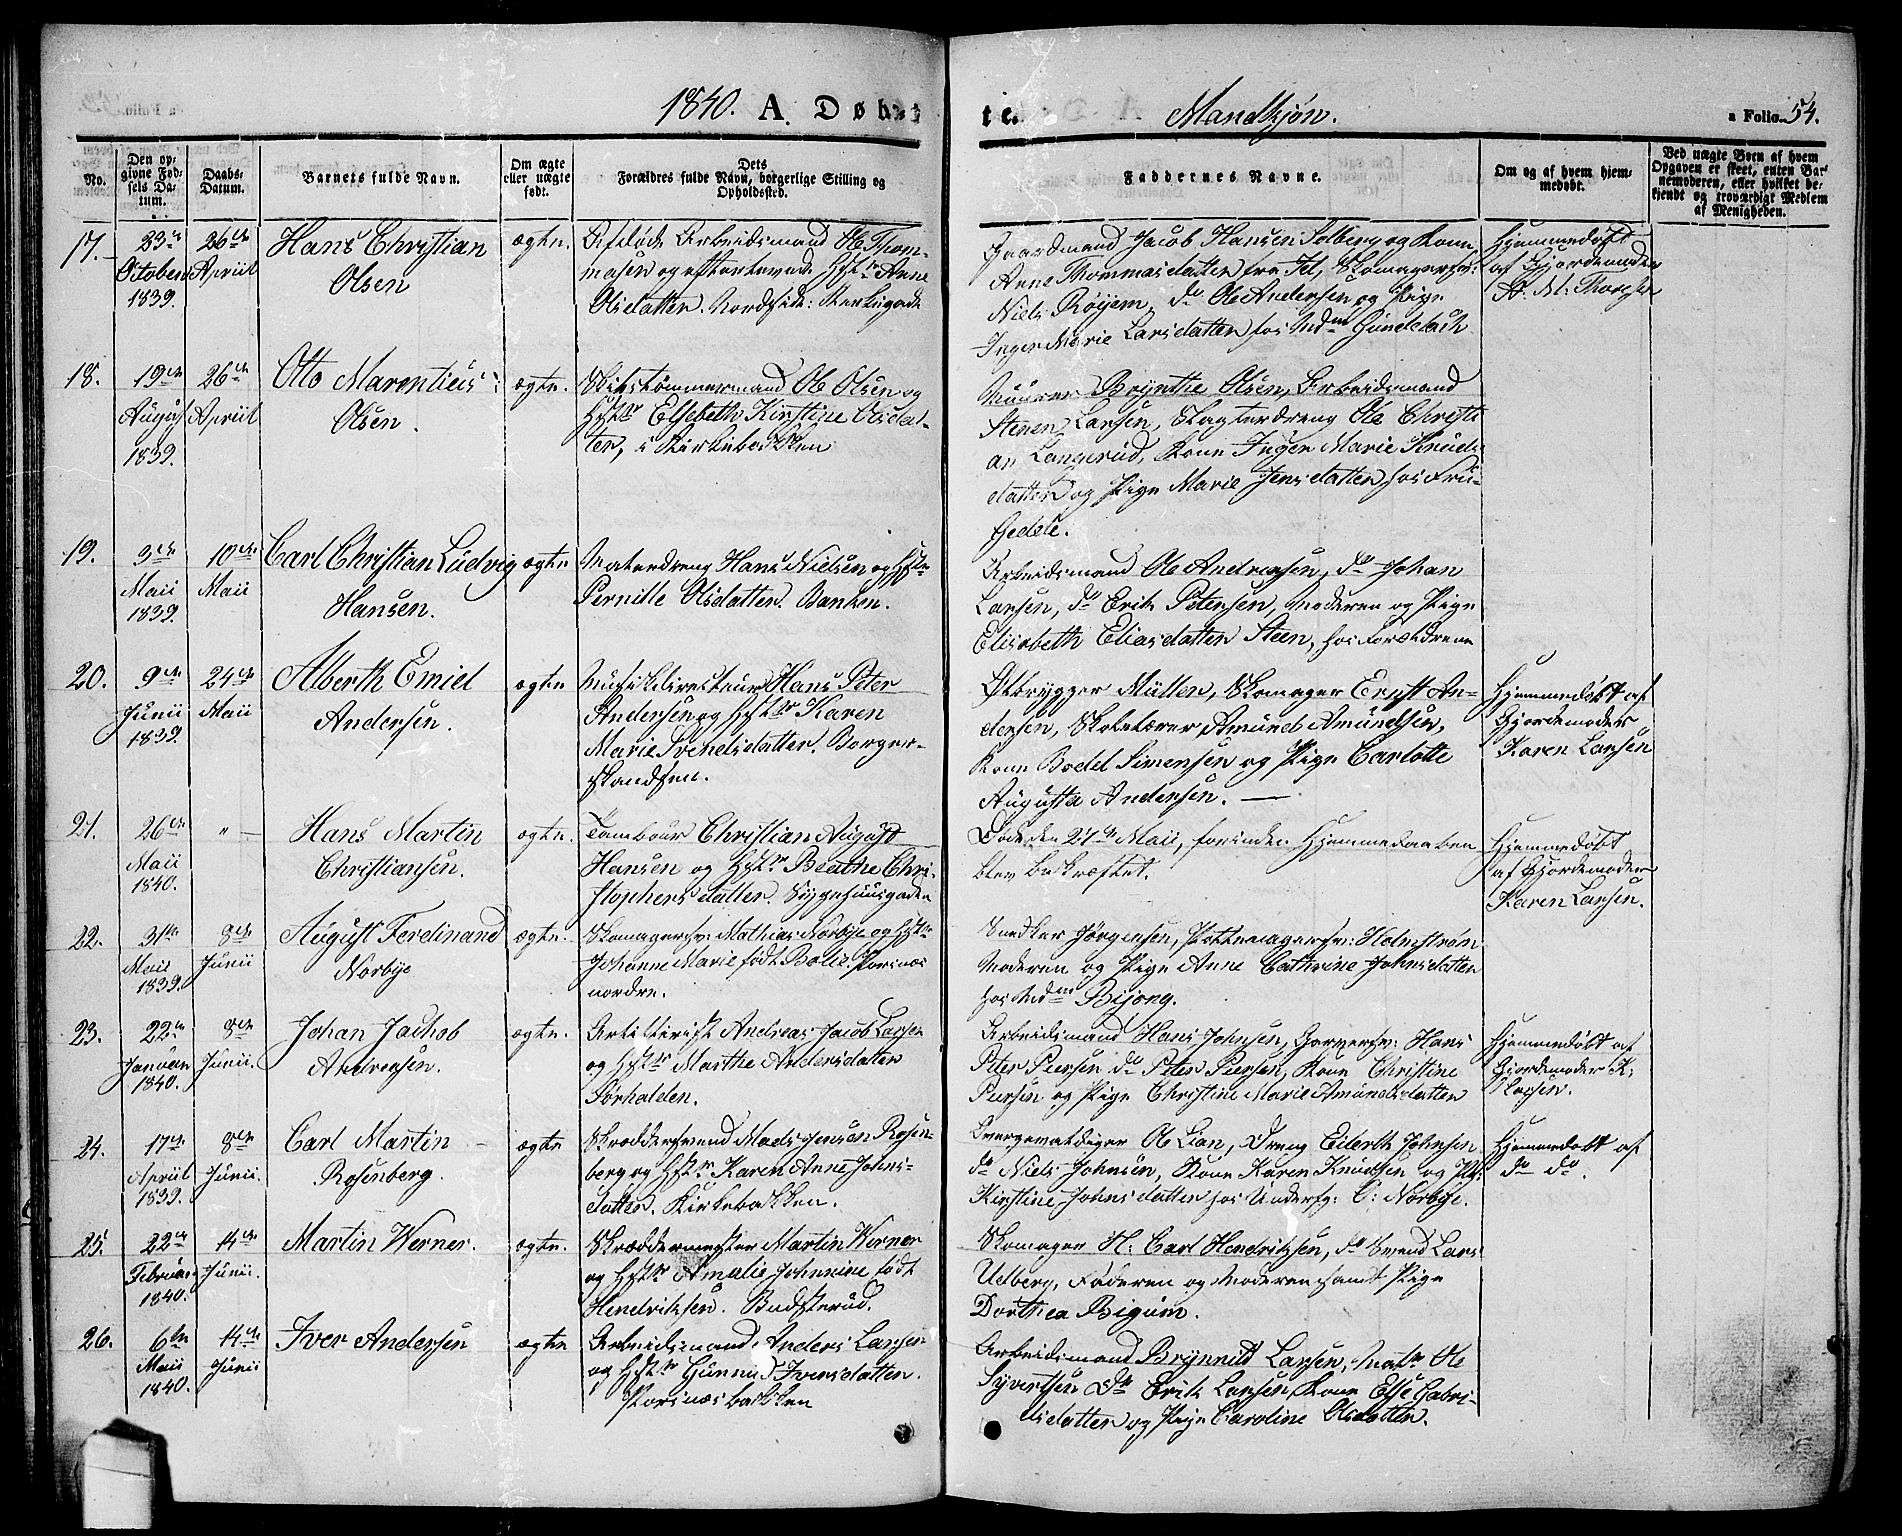 1840. A. Døbte. Mandkjøn. a Folio 54.
No.
Den op-
givne Fød-
sels Da-
tum.
Daabs-
Datum.
Barnets fulde Navn.
Om ægte
eller uægte
født.
Dets
Forældres fulde Navn, borgerlige Stilling og
Opholdssted.
Faddernes Navne.
Om og af hvem hjem-
medøbt.
Ved uægte Børn af hvem
Opgaven er skeet, enten Bar-
nemoderen, eller hvilket be-
kjendt og troværdigt Medlem
af Menigheden.
17.
23de
October
1839.
26de
Apriil
Hans Christian
Olsen
ægte.
Afdøde Arbeidsmand Ole Thom-
masen og efterlevende Hustr Anne
Olsdatter. Nordside:
Gaardmand Jacob Hansen Solberg og Kone
Anne Thommasdatter fra Id, Skomagersv:
Niels Röijem, do Ole Andersen og Pige
Inger Marie Larsdatter hos Mdm Gundelach
Hjemmedøbt
af Gjordemoder
A. M. Thoresen
18.
19de
August
1839.
26de
Apriil
Otto Marentius
Olsen
ægte.
Skibstømmermand Ole Olsen og
Hstr Elsebeth Kirstine Olsdat-
ter, i Kirkebakken
Muurer Brynthe Olsen, Arbeidsmand
Steen Larsen, Slagterdreng Ole Christi-
an Langerud, Kone Inger Marie Knuds-
datter og Pige Marie Jensdatter hos Fru
Gedde.
19.
9de
Maii
1839.
10de
Maii
Carl Christian Ludvig
Hansen.
ægte
Murerdreng Hans Nielsen og Hstr
Pernille Olsdatter. Banken.
Arbeidsmand Ole Andersen, do Johan
Larsen, do Erik Petersen, Moderen og Pige
Elisabeth Eliasdatter Steen, hos Forældrene
20.
9de
Junii
1839.
24de
Maii
Alberth Emiel
Andersen.
ægte
Musikdirecteur Hans Peter
Andersen og Hstr Karen
Marie Svendsdatter. Borger-
skandsen.
Ølbrygger Müller, Skomager Ernst An-
dersen, Skolelærer Amund Amundsen,
Kone Bodel Simensen og Pige Carlotte
Augusta Andersen. —
Hjemmedøbt af
Gjordemoder
Karen Larsen
21.
26de
Maii
1840.
" —
Hans Martin
Christiansen.
ægte.
Tambour Christian August
Hansen og Hstr Beathe Chri-
stophersdatter. Sygehuusgaden
Døde den 27de Maii, forinden Hjemmedaaben
blev bekræftet.
Hjemmedøbt
af Gjordemoder
Karen Larsen.
22.
31te
Maii
1839.
8de
Junii
August Ferdinand
Norbye
ægte.
Skomagersv: Mathias Norbye og Hstr
Johanne Marie født Bolis. Porsnæs
nordre.
Snedker Jørgensen, Pottemagersv: Holmstrøn
Moderen og Pige Anne Cathrine Johnsdatter
hos Mdm Bijong.
23.
22de
Januar
1840.
8de
Junii.
Johan Jachob
Andersen.
ægte.
Artillerist Andreas Jacob Larsen
og Hstr Marthe Andersdatter
Sørhalden.
Arbeidsmand Hans Johnsen, Garversv: Hans
Peter Piersen do Peter Piersen, Kone Christine
Piersen og Pige Christine Marie Amundsdatter
Hjemmedøbt af
Gjordemoder K.
Larsen.
24.
17de
Apriil
1839.
8de
Junii.
Carl Martin
Rosenberg.
ægte
Skræddersvend Mads Jensen Rosen-
berg og Hstr Karen Anne Johns-
datter. Kirkebakken.
Ole Lian, Dreng Eilerth Johnsen
do Niels Johnsen, Kone Karen Knudsen og Pige
Kirstine Johnsdatter hos Underfg: C: Norbye.
Hjemmedøbt af
do do.
25.
22de
Februar
1840.
14de
Junii.
Martin Werner.
ægte.
Skræddermester Martin Werner
og Hstr Amalie Johnnine født
Hendriksen. Budsterud.
Skomager H: Carl Hendriksen, do Svend Lars
Udberg, Faderen og Moderen samt Pige
Dorthea Bigum.
26.
6te
Maii
1840.
14de
Junii
Iver Andersen
ægte
Arbeidsmand Anders Larsen
og Hstr Gunnild Iversdatter.
Porsnæsbakken
Arbeidsmand Brynnild Larsen, Matr Ole
Syvertsen do Erik Larsen, Kone Else Gabri-
elsdatter og Pige Caroline Olsdatter.